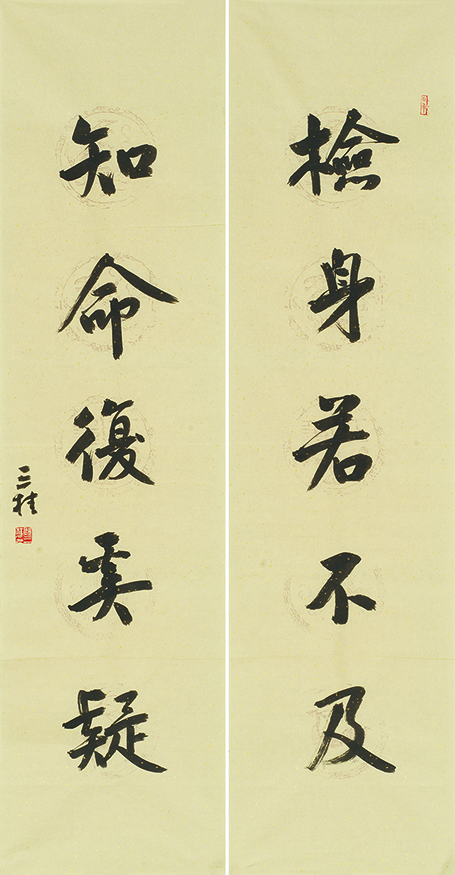 檢身若不及
知命復奚疑
三桂